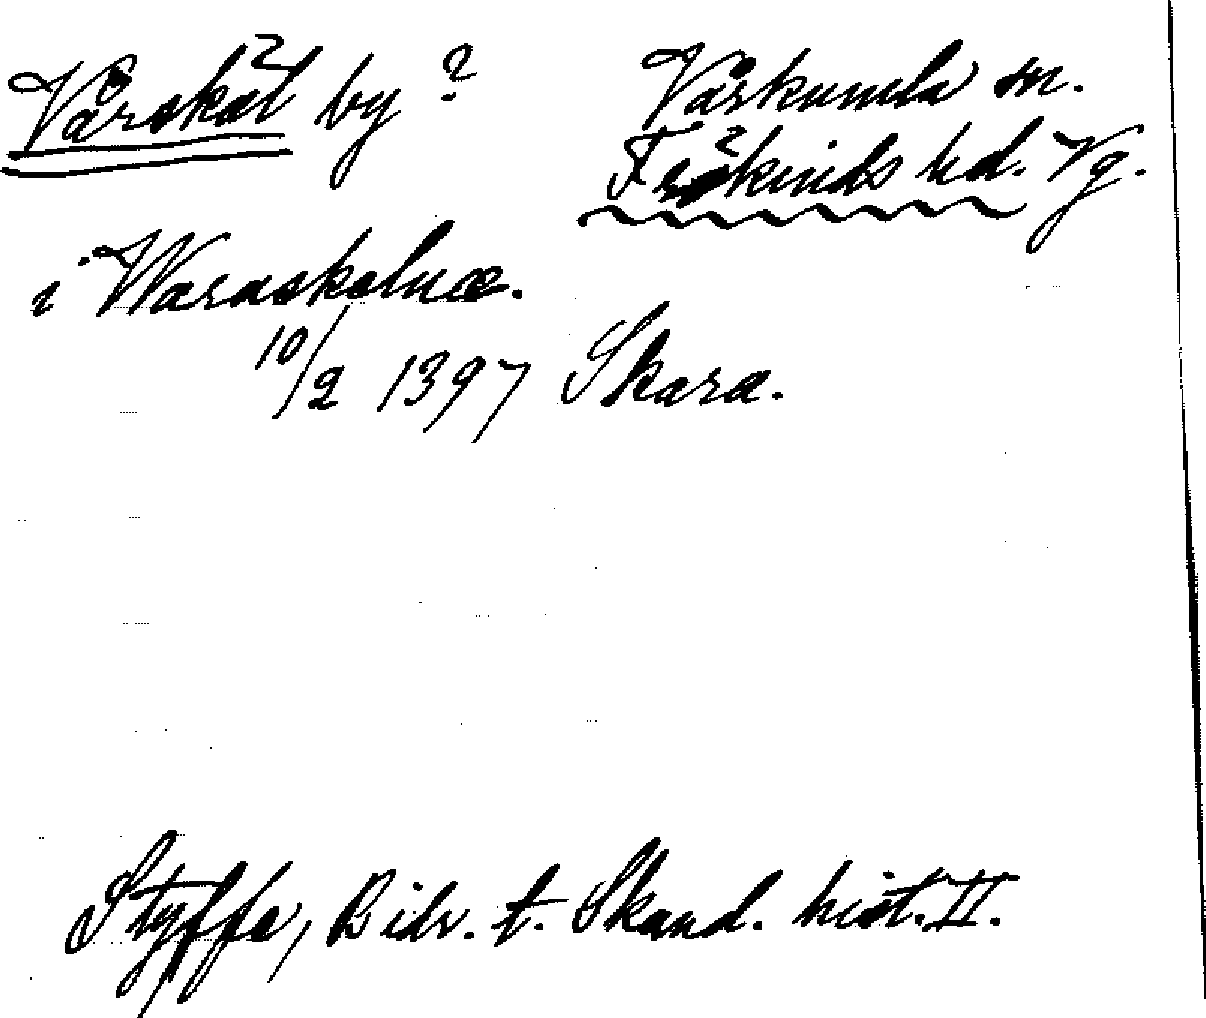 Vårskål by ? Vårkumla sn.
Frökinds hd. Vg.
i Waraskolnæ.
10/2 1397 Skara.
Styffe, Bidr. t. Skand. hist. II.